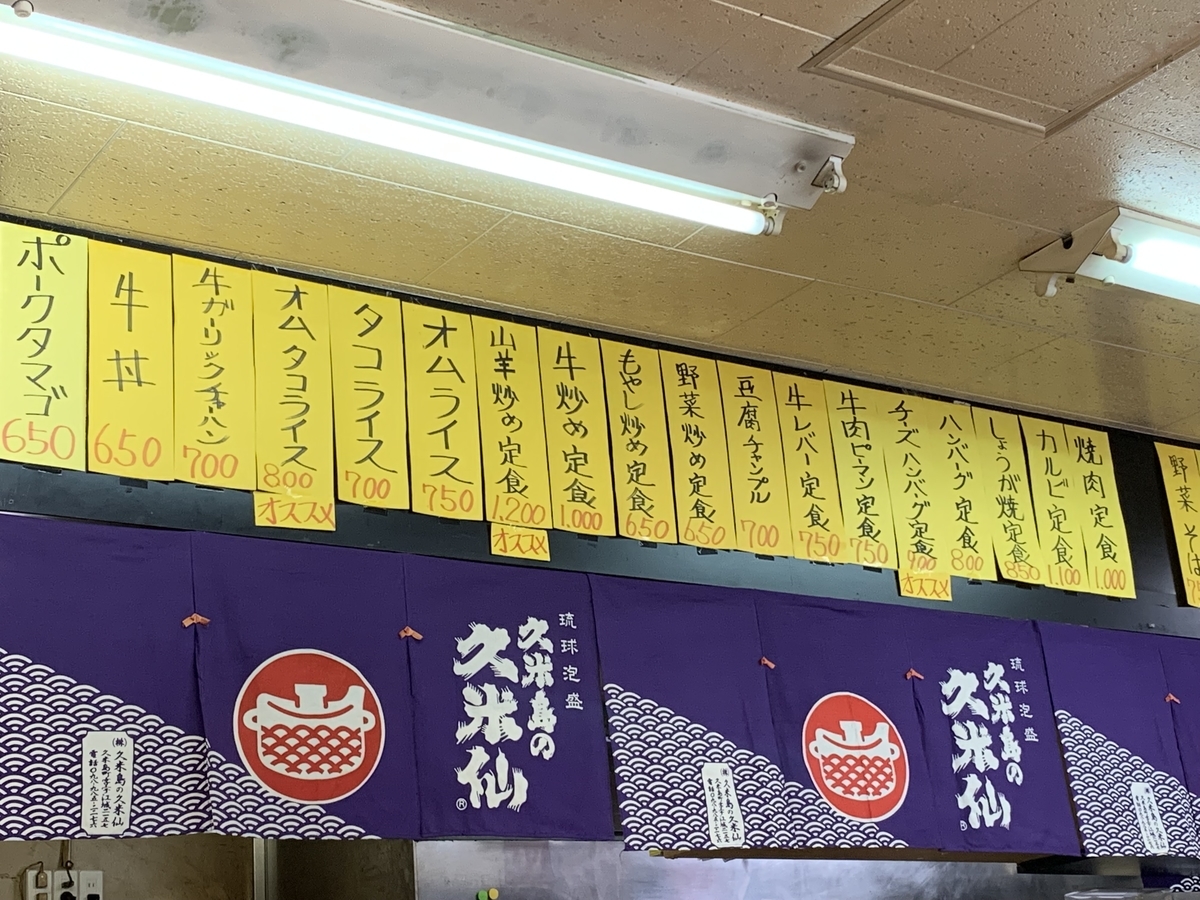 ポークタマゴ
650
牛丼
650
牛ガーリックチャーハン
700
オムタコライス
800
オススメ
タコライス
700
オムライス
750
山羊炒め定食
1.200
オススメ
牛炒め定食
1.000
もやし炒め定食
650
野菜炒め定食
650
豆腐チャンプル
700
牛レバー定食
750
牛肉ピーマン定食
750
チーズハンバーグ定食
900
オススメ
ハンバーグ定食
800
しょうが焼定食
850
カルビ定食
1.100
焼肉定食
1.000
野菜そば
琉球泡盛
久米島の
久米仙
®
(株)久米島の久米仙
琉球泡盛
久米島の
久米仙
®
(株)久米島の久米仙